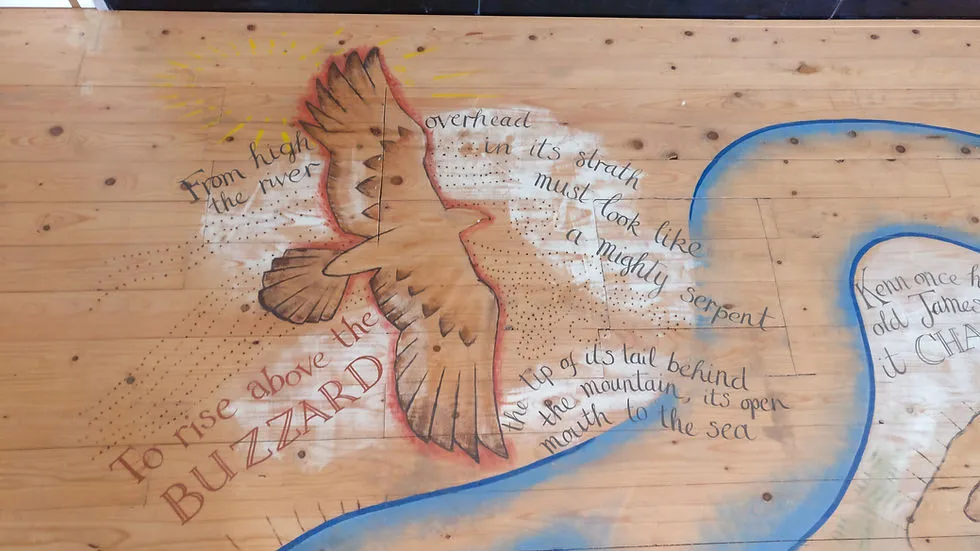 From high
the river
overhead
in its strath
must look like
a mighty
serpent
the tip of its tail behind
the mountain, its open
mouth to the sea
To rise above the
BUZZARD
Kenn once
old
it